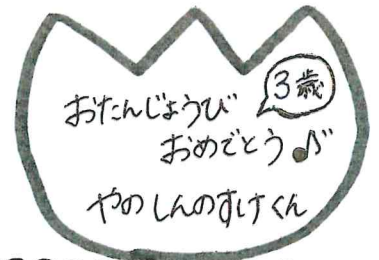 おたんじょうび
3歳
おめでとう♪
やのしんのすけくん